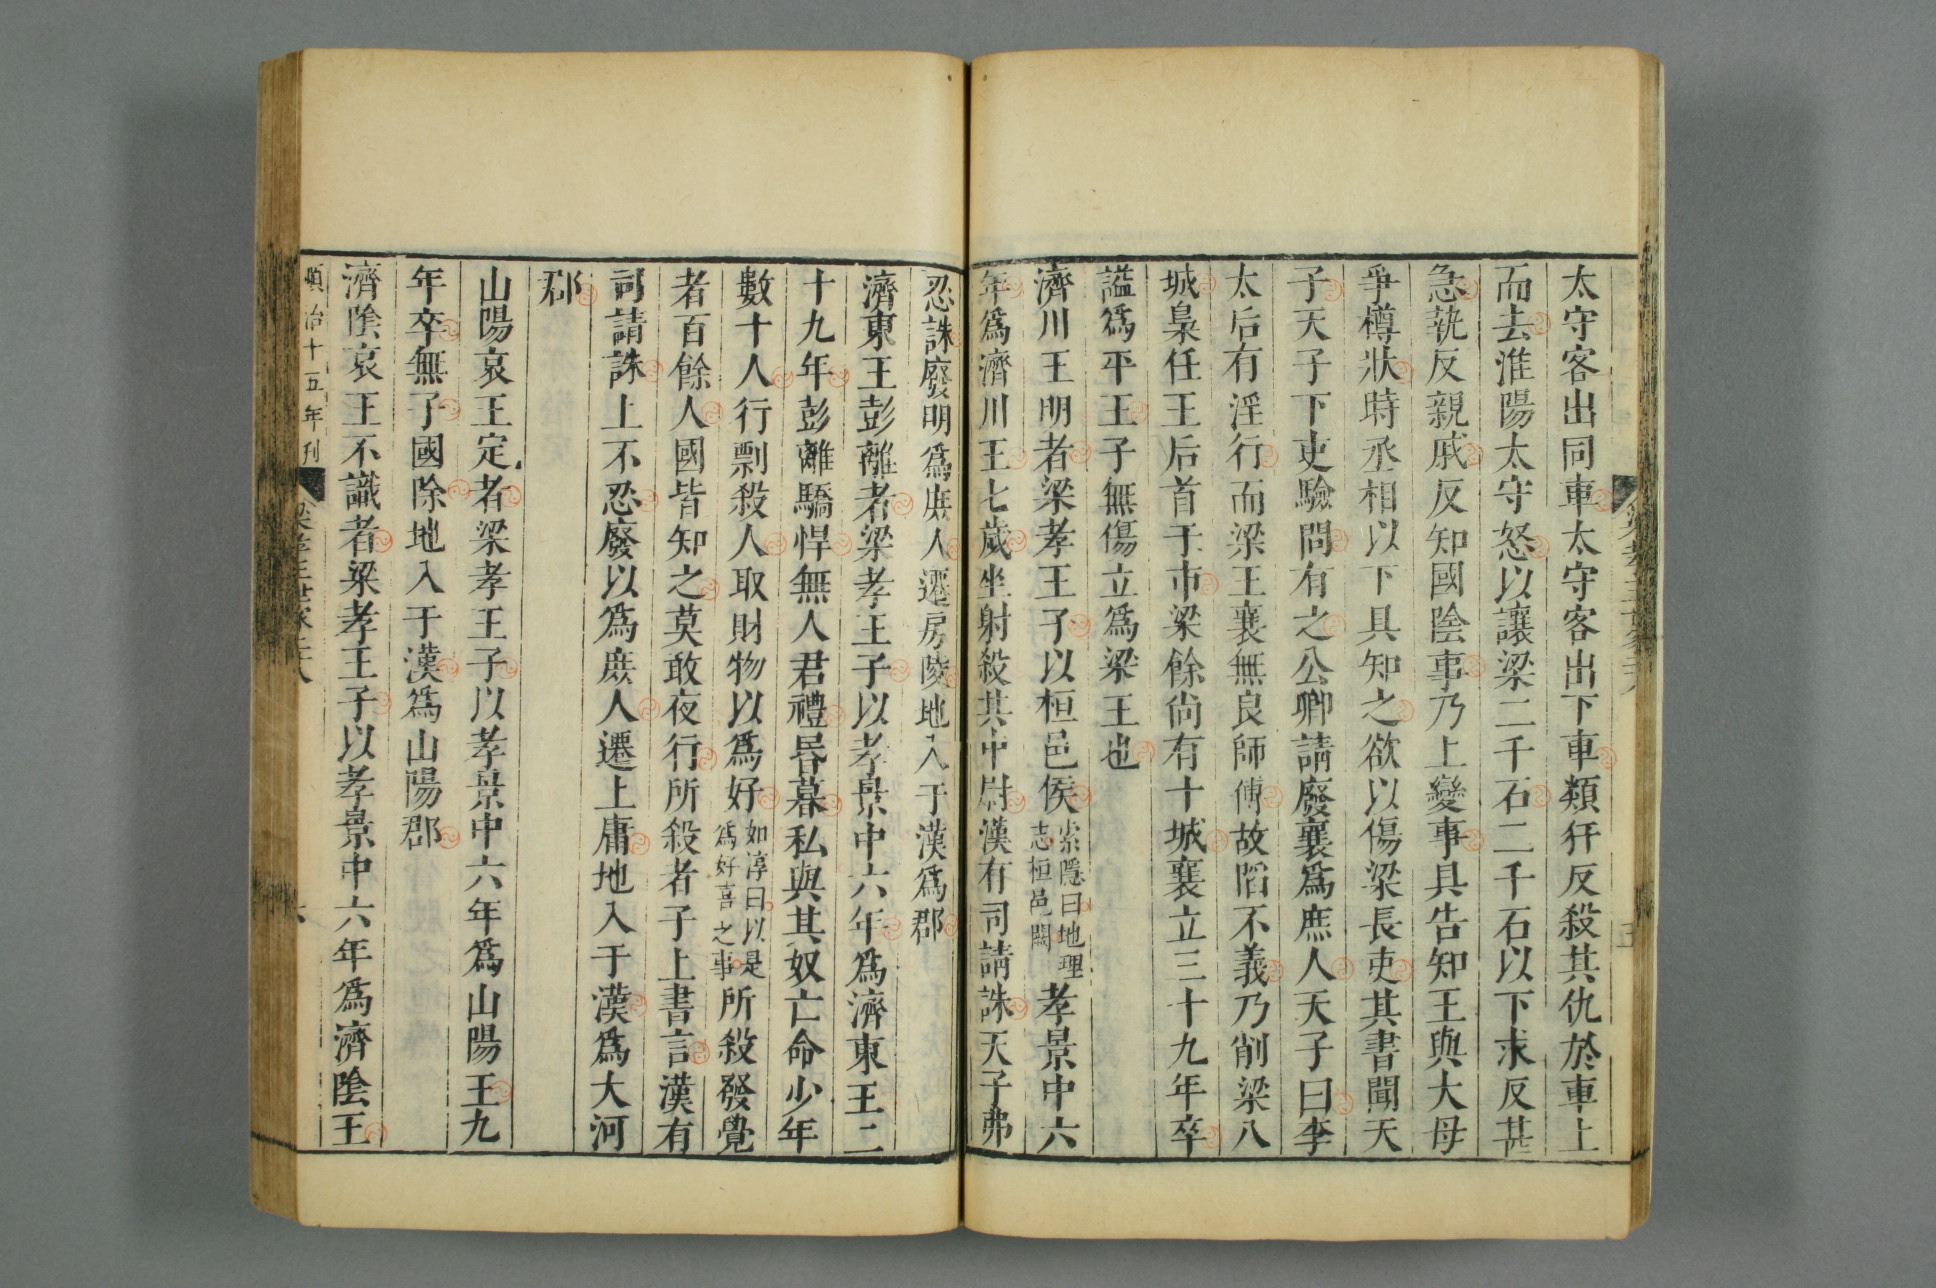 太守客出同車太守客出下車類犴反殺其仇於車上
而去淮陽太守怒以讓梁二千石二千石以下求反甚
急執反親戚反知國陰事乃上變事具告知王與大母
爭樽狀時丞相以下具知之欲以傷梁長吏其書聞天
子天子下吏驗問有之公卿請廢襄爲庶人天子曰李
太后有淫行而梁王襄無良師傅故陷不義乃削梁八
城梟任王后首于市梁餘尚有十城襄立三十九年卒
謚爲平王子無傷立爲梁王也
濟川王明者梁孝王子以桓邑侯索隱曰地理志桓邑闕孝景中六
年爲濟川王七歲坐射殺其中尉漢有司請誅天子弗
忍誅廢明爲庶人遷房陵地入于漢爲郡
濟東王彭離者梁孝王子以孝景中六年爲濟東王二
十九年彭離驕悍無人君禮昬暮私與其奴亡命少年
數十人行剽殺人取財物以爲好如淳曰以是爲好喜之事所殺發覺
者百餘人國皆知之莫敢夜行所殺者子上書言漢有
司請誅上不忍廢以爲庶人遷上庸地入于漢爲大河
郡
山陽哀王定者梁孝王子以孝景中六年爲山陽王九
年卒無子國除地入于漢爲山陽郡
濟陰哀王不識者梁孝王子以孝景中六年爲濟陰王
順治十五年刊
梁孝王世家二十八
六